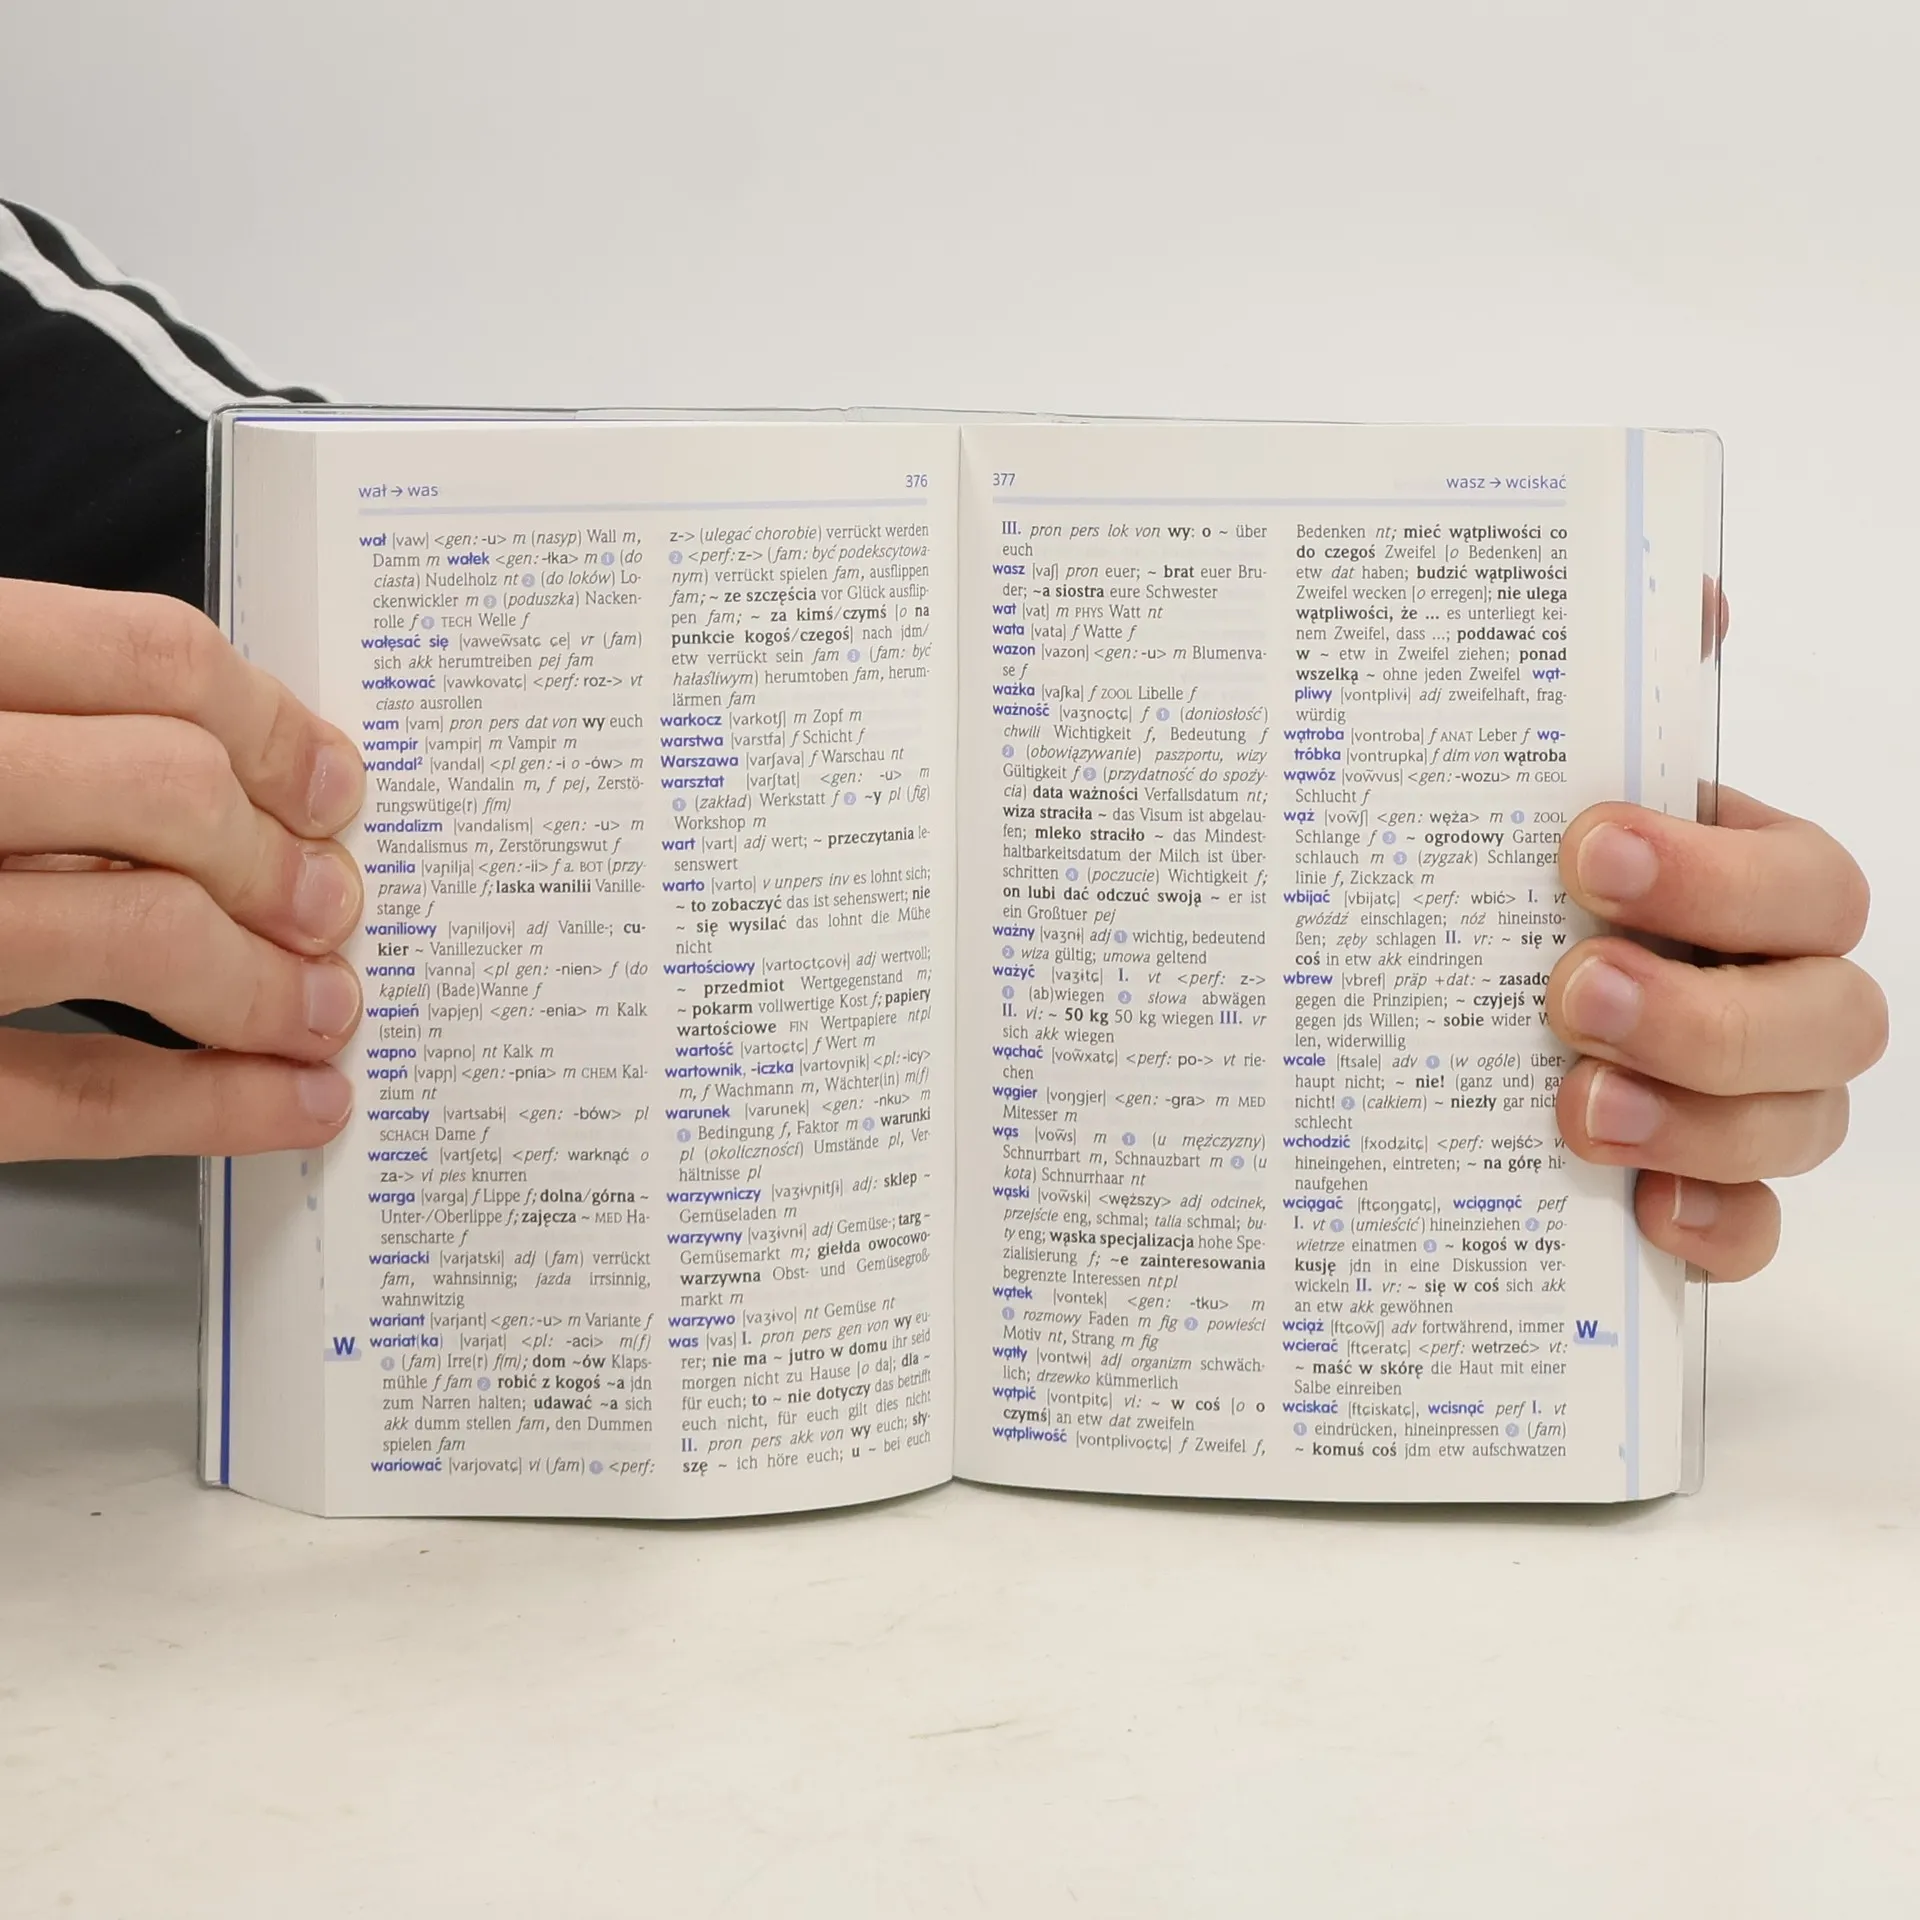 wał → was
376
wał |vaw| <gen: -u> m (nasyp) Wall m,
Damm m wałek <gen: -łka> m ❶ (do
ciasta) Nudelholz nt ❷ (do loków) Lo-
ckenwickler m ❸ (poduszka) Nacken-
rolle f ❹ TECH Welle f
wałęsać się |vawew̃satɕ ɕe| vr (fam)
sich akk herumtreiben pej fam
wałkować |vawkovatɕ| <perf: roz-> vt
ciasto ausrollen
wam |vam| pron pers dat von wy euch
wampir |vampir| m Vampir m
wandal² |vandal| <pl gen: -i o -ów> m
Wandale, Wandalin m, f pej, Zerstö-
rungswütige(r) f(m)
wandalizm |vandalism| <gen: -u> m
Wandalismus m, Zerstörungswut f
wanilia |vaɲilja| <gen: -ii> f a. BOT (przy-
prawa) Vanille f; laska wanilii Vanille-
stange f
waniliowy |vaɲiljovɨ| adj Vanille-; cu-
kier ~ Vanillezucker m
wanna |vanna| <pl gen: -nien> f (do
kąpieli) (Bade)Wanne f
wapień |vapjeɲ| <gen: -enia> m Kalk
(stein) m
wapno |vapno| nt Kalk m
wapń |vapɲ| <gen: -pnia> m CHEM Kal-
zium nt
warcaby |vartsabɨ| <gen: -bów> pl
SCHACH Dame f
warczeć |vartʃetɕ| <perf: warknąć o
za-> vi pies knurren
warga |varga| f Lippe f; dolna/górna ~
Unter-/Oberlippe f; zajęcza ~ MED Ha-
senscharte f
wariacki |varjatski| adj (fam) verrückt
fam, wahnsinnig; jazda irrsinnig,
wahnwitzig
wariant |varjant| <gen: -u> m Variante f
W
wariat(ka) |varjat| <pl: -aci> m(f)
❶ (fam) Irre(r) f(m); dom ~ów Klaps-
mühle f fam ❷ robić z kogoś ~a jdn
zum Narren halten; udawać ~a sich
akk dumm stellen fam, den Dummen
spielen fam
wariować |varjovatɕ| vi (fam) ❶ <perf:
z-> (ulegać chorobie) verrückt werden
❷ <perf: z-> (fam: być podekscytowa-
nym) verrückt spielen fam, ausflippen
fam; ~ ze szczęścia vor Glück ausflip-
pen fam; ~ za kimś/czymś |o na
punkcie kogoś/czegoś| nach jdm/
etw verrückt sein fam ❸ (fam: być
hałaśliwym) herumtoben fam, herum-
lärmen fam
warkocz |varkotʃ| m Zopf m
warstwa |varstfa| f Schicht f
Warszawa |varʃava| f Warschau nt
warsztat |varʃtat| <gen: -u> m
❶ (zakład) Werkstatt f ❷ ~y pl (fig)
Workshop m
wart |vart| adj wert; ~ przeczytania le-
senswert
warto |varto| v unpers inv es lohnt sich;
~ to zobaczyć das ist sehenswert; nie
~ się wysilać das lohnt die Mühe
nicht
wartościowy |vartoɕtɕovɨ| adj wertvoll;
~ przedmiot Wertgegenstand m;
~ pokarm vollwertige Kost f; papiery
wartościowe FIN Wertpapiere ntpl
wartość |vartoɕtɕ| f Wert m
wartownik, -iczka |vartovɲik| <pl: -icy>
m, f Wachmann m, Wächter(in) m(f)
warunek |varunek| <gen: -nku> m
❶ Bedingung f, Faktor m ❷ warunki
pl (okoliczności) Umstände pl, Ver-
hältnisse pl
warzywniczy |vaʒɨvɲitʃɨ| adj: sklep ~
Gemüseladen m
warzywny |vaʒɨvnɨ| adj Gemüse-; targ ~
Gemüsemarkt m; giełda owocowo-
warzywna Obst- und Gemüsegroß-
markt m
warzywo |vaʒɨvo| nt Gemüse nt
was |vas| I. pron pers gen von wy eu-
rer; nie ma ~ jutro w domu ihr seid
morgen nicht zu Hause |o da|; dla ~
für euch; to ~ nie dotyczy das betrifft
euch nicht, für euch gilt dies nicht
II. pron pers akk von wy euch; sły-
szę ~ ich höre euch; u ~ bei euch
377
wasz → wciskać
III. pron pers lok von wy: o ~ über
euch
wasz |vaʃ| pron euer; ~ brat euer Bru-
der; ~a siostra eure Schwester
wat |vat| m PHYS Watt nt
wata |vata| f Watte f
wazon |vazon| <gen: -u> m Blumenva-
se f
ważka |vaʃka| f ZOOL Libelle f
ważność |vaʒnoɕtɕ| f ❶ (doniosłość)
chwili Wichtigkeit f, Bedeutung f
❷ (obowiązywanie) paszportu, wizy
Gültigkeit f ❸ (przydatność do spoży-
cia) data ważności Verfallsdatum nt;
wiza straciła ~ das Visum ist abgelau-
fen; mleko straciło ~ das Mindest-
haltbarkeitsdatum der Milch ist über-
schritten ❹ (poczucie) Wichtigkeit f;
on lubi dać odczuć swoją ~ er ist
ein Großtuer pej
ważny |vaʒnɨ| adj ❶ wichtig, bedeutend
❷ wiza gültig; umowa geltend
ważyć |vaʒɨtɕ| I. vt <perf: z->
❶ (ab)wiegen ❷ słowa abwägen
II. vi: ~ 50 kg 50 kg wiegen III. vr
sich akk wiegen
wąchać |vow̃xatɕ| <perf: po-> vt rie-
chen
wągier |voŋgjer| <gen: -gra> m MED
Mitesser m
wąs |vow̃s| m ❶ (u mężczyzny)
Schnurrbart m, Schnauzbart m ❷ (u
kota) Schnurrhaar nt
wąski |vow̃ski| <węższy> adj odcinek,
przejście eng, schmal; talia schmal; bu-
ty eng; wąska specjalizacja hohe Spe-
zialisierung f; ~e zainteresowania
begrenzte Interessen ntpl
wątek |vontek| <gen: -tku> m
❶ rozmowy Faden m fig ❷ powieści
Motiv nt, Strang m fig
wątły |vontwɨ| adj organizm schwäch-
lich; drzewko kümmerlich
wątpić |vontpitɕ| vi: ~ w coś |o o
czymś| an etw dat zweifeln
wątpliwość |vontplivoɕtɕ| f Zweifel f,
Bedenken nt; mieć wątpliwości co
do czegoś Zweifel |o Bedenken| an
etw dat haben; budzić wątpliwości
Zweifel wecken |o erregen|; nie ulega
wątpliwości, że ... es unterliegt kei-
nem Zweifel, dass ...; poddawać coś
w ~ etw in Zweifel ziehen; ponad
wszelką ~ ohne jeden Zweifel wąt-
pliwy |vontplivɨ| adj zweifelhaft, frag-
würdig
wątroba |vontroba| f ANAT Leber f wą-
tróbka |vontrupka| f dim von wątroba
wąwóz |vow̃vus| <gen: -wozu> m GEOL
Schlucht f
wąż |vow̃ʃ| <gen: węża> m ❶ ZOOL
Schlange f ❷ ~ ogrodowy Garten
schlauch m ❸ (zygzak) Schlangen
linie f, Zickzack m
wbijać |vbijatɕ| <perf: wbić> I. vt
gwóźdź einschlagen; nóż hineinsto-
ßen; zęby schlagen II. vr: ~ się w
coś in etw akk eindringen
wbrew |vbref| präp +dat: ~ zasado
gegen die Prinzipien; ~ czyjejś w
gegen jds Willen; ~ sobie wider W
len, widerwillig
wcale |ftsale| adv ❶ (w ogóle) über-
haupt nicht; ~ nie! (ganz und) gar
nicht! ❷ (całkiem) ~ niezły gar nich
schlecht
wchodzić |fxodʑitɕ| <perf: wejść> vi
hineingehen, eintreten; ~ na górę hi-
naufgehen
wciągać |ftɕoŋgatɕ|, wciągnąć perf
I. vt ❶ (umieścić) hineinziehen ❷ po-
wietrze einatmen ❸ ~ kogoś w dys-
kusję jdn in eine Diskussion ver-
wickeln II. vr: ~ się w coś sich akk
an etw akk gewöhnen
wciąż |ftɕow̃ʃ| adv fortwährend, immer
W
wcierać |ftɕeratɕ| <perf: wetrzeć> vt:
~ maść w skórę die Haut mit einer
Salbe einreiben
wciskać |ftɕiskatɕ|, wcisnąć perf I. vt
❶ eindrücken, hineinpressen ❷ (fam)
~ komuś coś jdm etw aufschwatzen